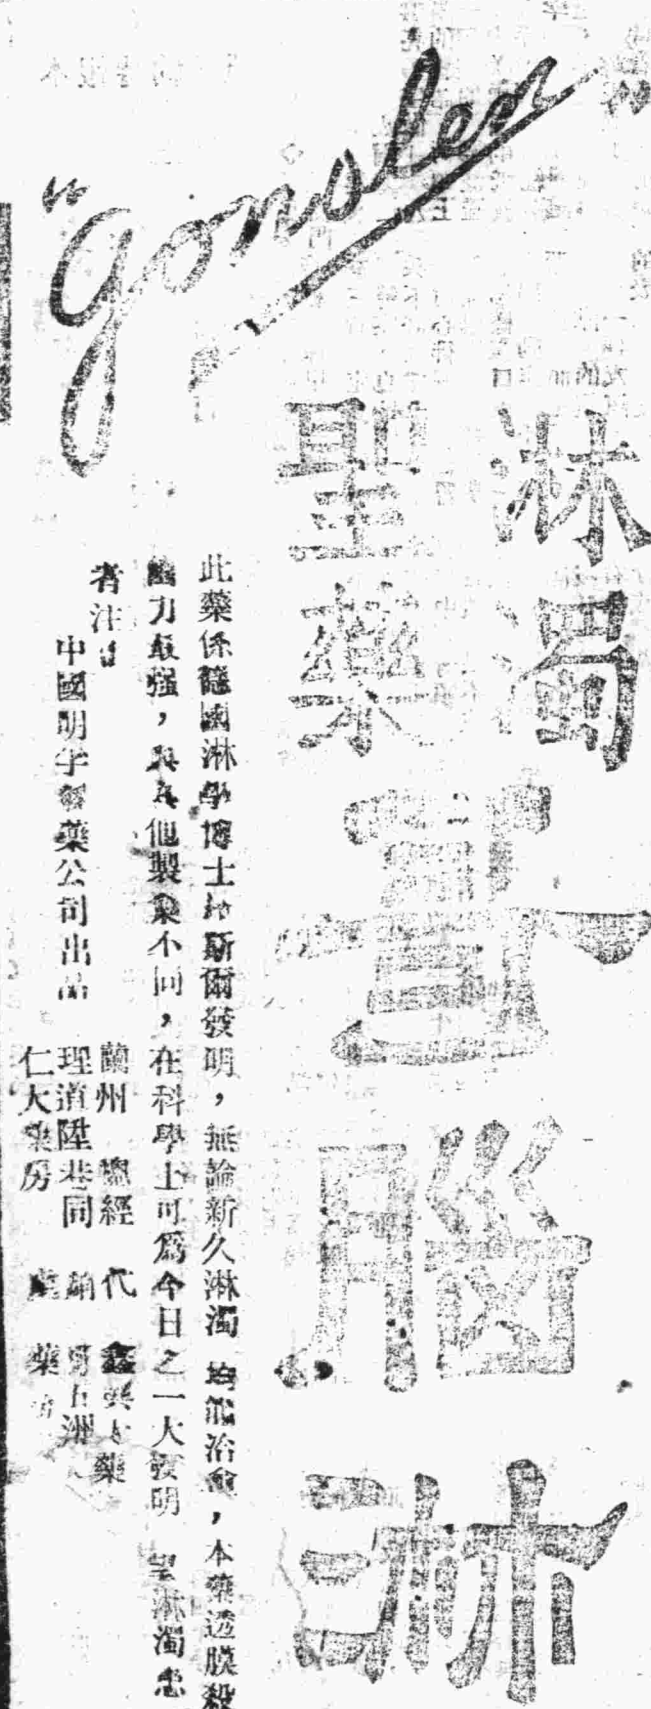 "Gonolen"
淋濁
聖藥
腦淋
此藥係德國淋學博士 斯爾發明，無論新久淋濁 均能治愈，本藥透膜殺
力最强，與其他製藥不同，在科學上可爲今日之一大發明 望淋濁患
者注意
中國明宇製藥公司出品
蘭州 總經
理道陞巷同
仁大藥房
代
處
鑫 大藥
五洲
藥